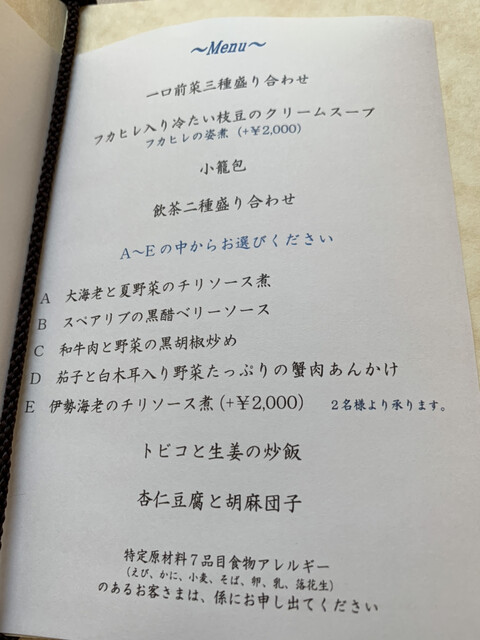 ～Menu～
一口前菜三種盛り合わせ
フカヒレ入り冷たい枝豆のクリームスープ
フカヒレの姿煮（+￥2,000）
小籠包
飲茶二種盛り合わせ
A～Eの中からお選びください
A 大海老と夏野菜のチリソース煮
B スペアリブの黒醋ベリーソース
C 和牛肉と野菜の黒胡椒炒め
D 茄子と白木耳入り野菜たっぷりの蟹肉あんかけ
E 伊勢海老のチリソース煮（+￥2,000） 2名様より承ります。
トビコと生姜の炒飯
杏仁豆腐と胡麻団子
特定原材料7品目食物アレルギー
（えび、かに、小麦、そば、卵、乳、落花生）
のあるお客さまは、係にお申し出てください